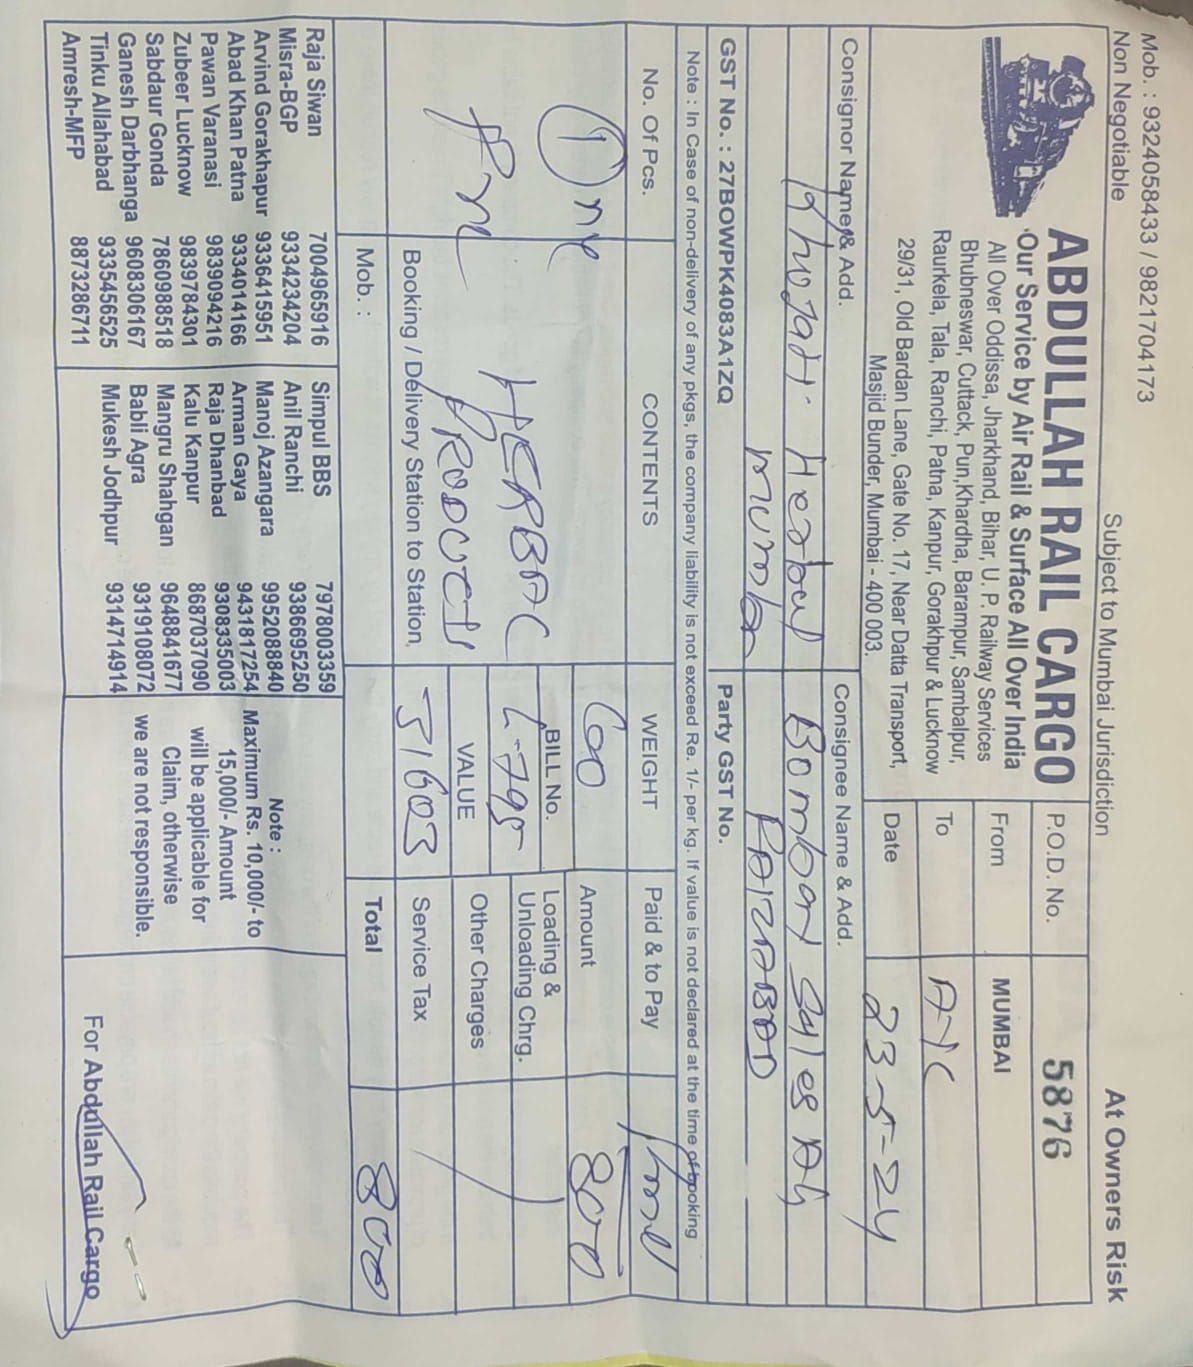 Mob. : 9324058433 / 9821704173
Non Negotiable
Subject to Mumbai Jurisdiction
At Owners Risk
ABDULLAH RAIL CARGO
'Our Service by Air Rail & Surface All Over India
All Over Oddissa, Jharkhand, Bihar, U. P. Railway Services
Bhubneswar, Cuttack, Puri,Khardha, Barampur, Sambalpur,
Raurkela, Tala, Ranchi, Patna, Kanpur, Gorakhpur & Lucknow
29/31, Old Bardan Lane, Gate No. 17, Near Datta Transport,
Masjid Bunder, Mumbai - 400 003.
P.O.D. No. 5876
From MUMBAI
To
Date 23-5-24
Consignor Name & Add.
Herbal
Consignee Name & Add.
Bombay Sales
FAIZABAD
GST No. : 27BOWPK4083A1ZQ
Party GST No.
Note : In Case of non-delivery of any pkgs, the company liability is not exceed Re. 1/- per kg. If value is not declared at the time of booking
No. Of Pcs.
CONTENTS
WEIGHT
Paid & to Pay
1 One
HERBAL
PRODUCTS
60
Amount 800
BILL No.
L-795
Loading &
Unloading Chrg.
VALUE
31603
Other Charges
Booking / Delivery Station to Station,
Service Tax
Mob. :
Total 800
Raja Siwan 7004965916
Misra-BGP 9334234204
Arvind Gorakhapur 9336415951
Abad Khan Patna 9334014166
Pawan Varanasi 9839094216
Zubeer Lucknow 9839784301
Sabdaur Gonda 7860988518
Ganesh Darbhanga 9608306167
Tinku Allahabad 9335456525
Amresh-MFP 8873286711
Simpul BBS 7978003359
Anil Ranchi 9386695250
Manoj Azangara 9952088840
Arman Gaya 9431817254
Raja Dhanbad 9308335003
Kalu Kanpur 8687037090
Mangru Shahgan 9648841677
Babli Agra 9319108072
Mukesh Jodhpur 9314714914
Note :
Maximum Rs. 10,000/- to
15,000/- Amount
will be applicable for
Claim, otherwise
we are not responsible.
For Abdullah Rail Cargo